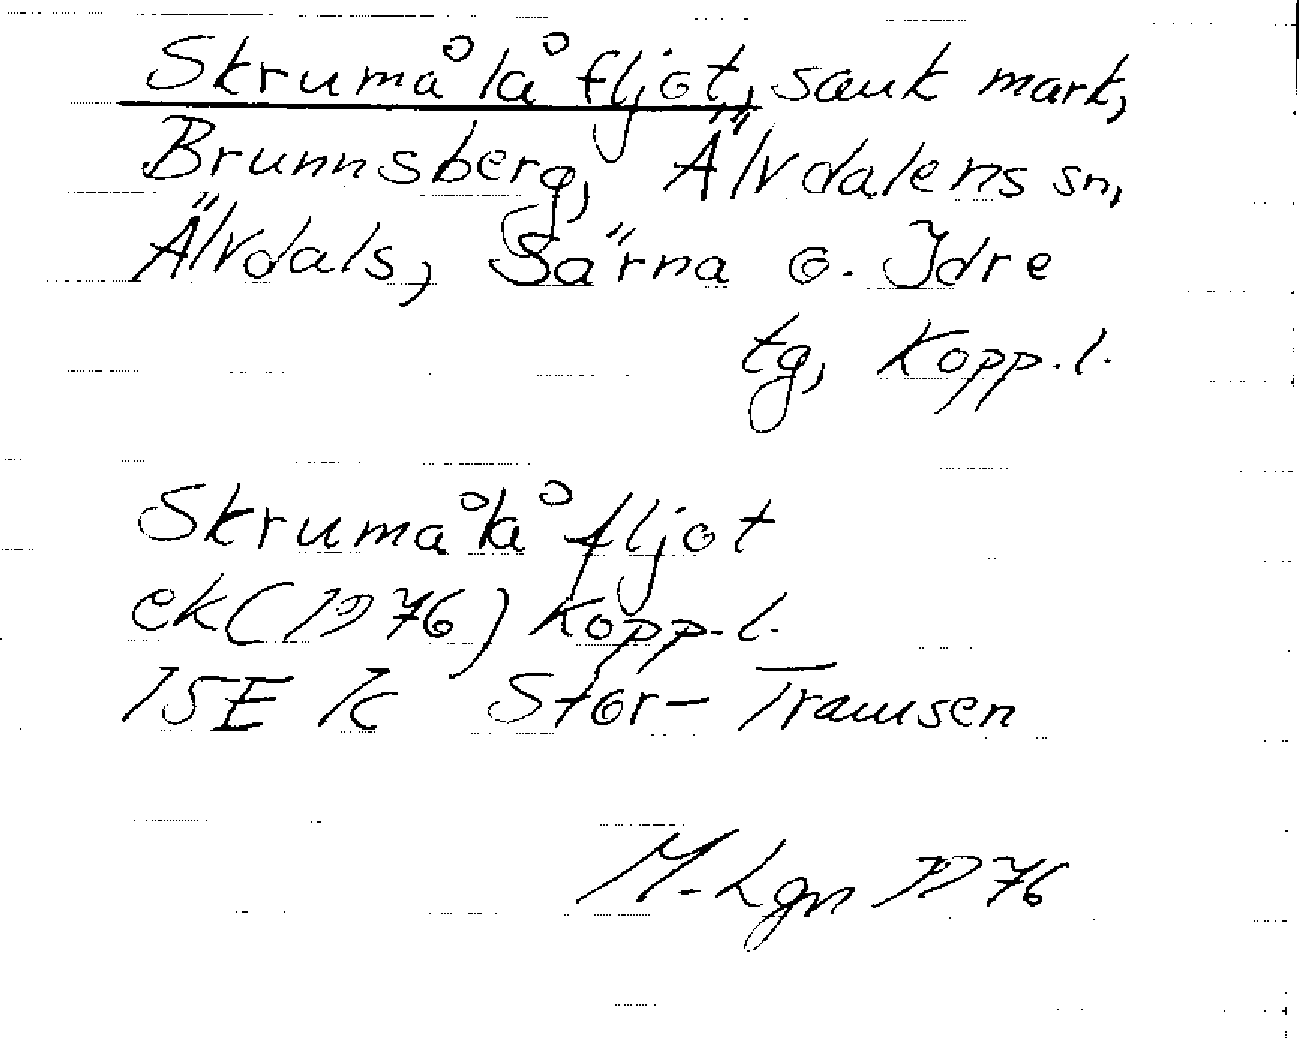 Skrumålå fljot, sank mark,
Brunnsberg, Älvdalens sn,
Älvdals, Särna o. Idre
tg, Kopp.l.
Skrumålå fljot
ek (1976) Kopp.l.
15E 7c Stor-Tramsen
M-Lgn 1976